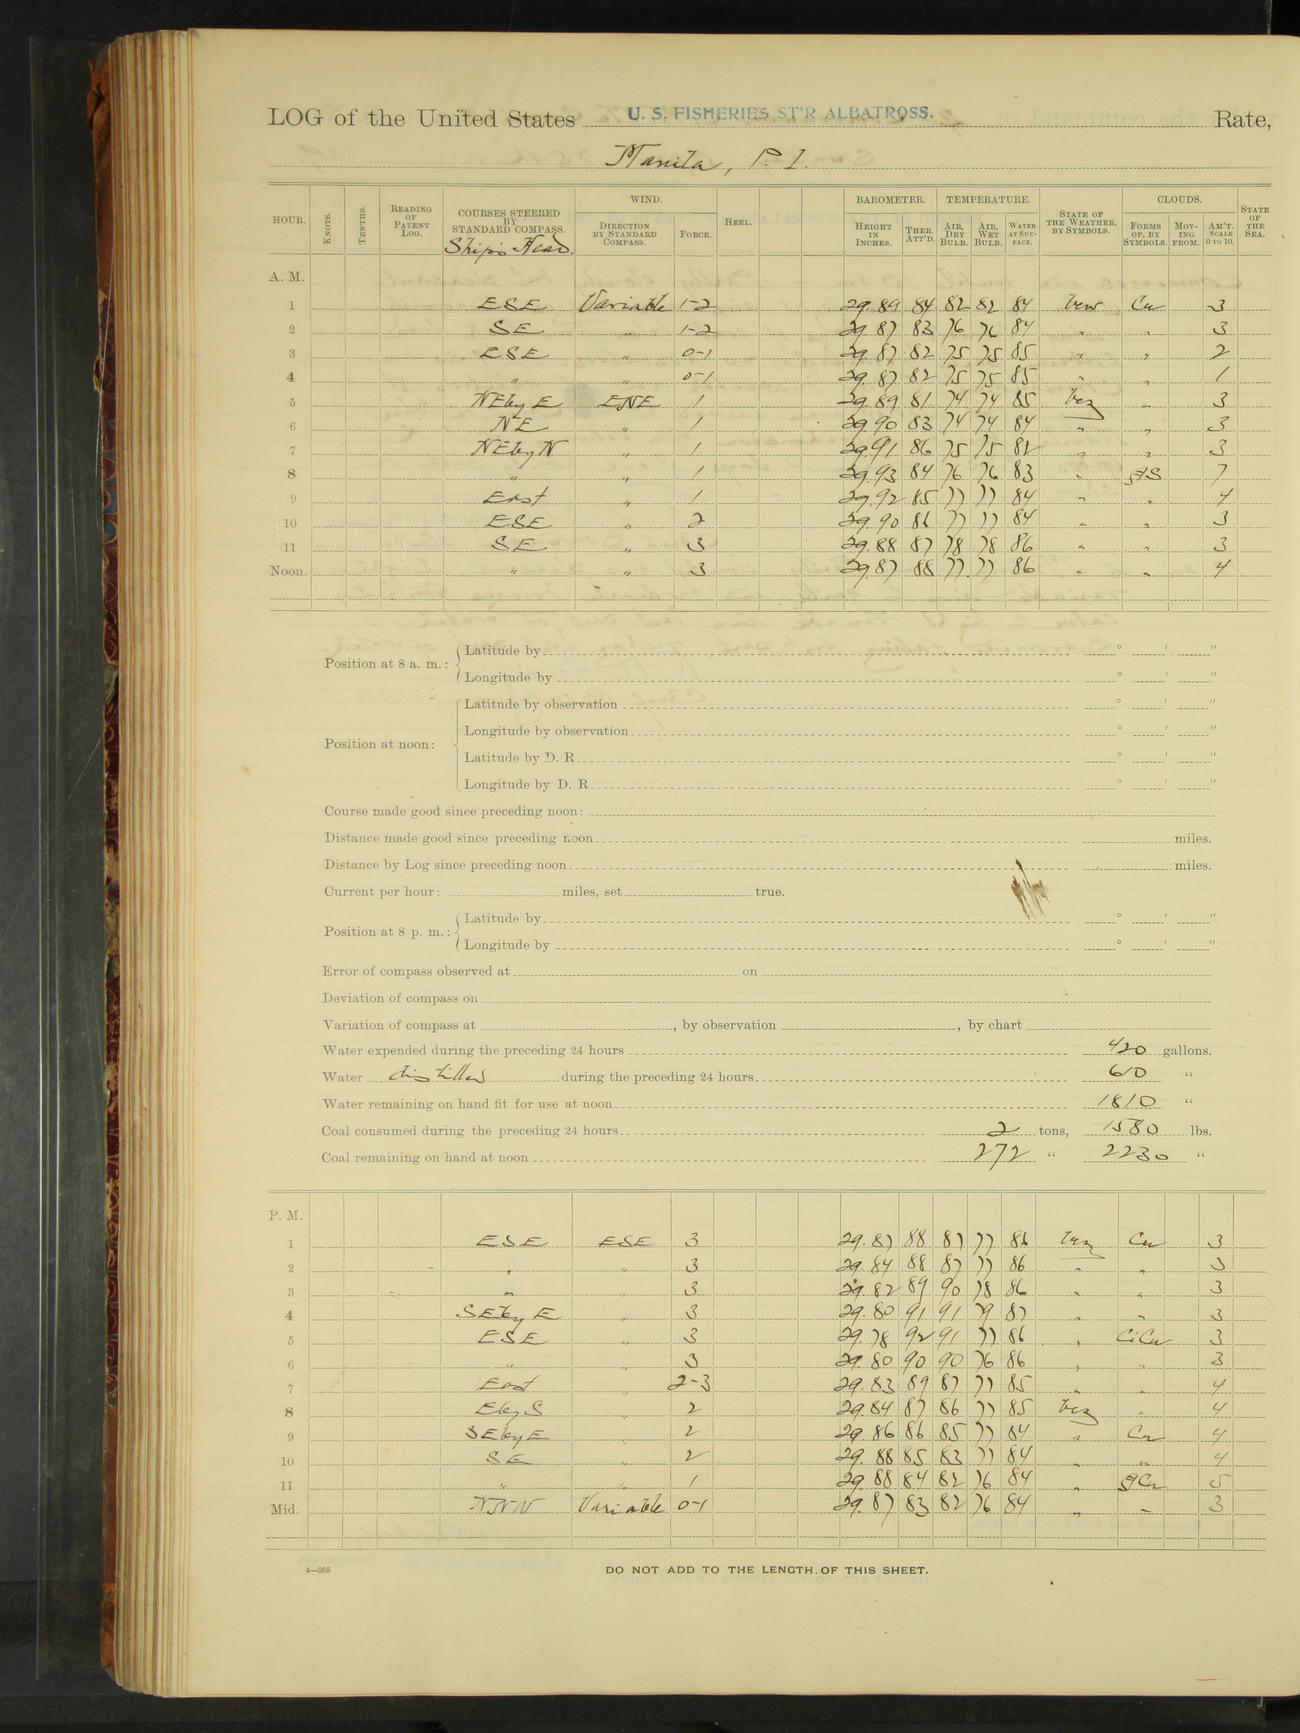 LOG of the United States U. S. FISHERIES ST'R ALBATROSS. Rate,
Manila, P. I.
HOUR. KNOTS. TENTHS. READING OF PATENT LOG. COURSES STEERED BY STANDARD COMPASS. Ship's Head. WIND. DIRECTION BY STANDARD COMPASS. FORCE. HEEL. BAROMETER. HEIGHT IN INCHES. THER. ATT'D. TEMPERATURE. AIR, DRY BULB. AIR, WET BULB. WATER AT SURFACE. STATE OF THE WEATHER, BY SYMBOLS. CLOUDS. FORMS OF, BY SYMBOLS. MOVING FROM. AM'T. SCALE 0 TO 10. STATE OF THE SEA.
A. M.
1 ESE Variable 1-2 29.89 84 82 82 84 Cu 3
2 SE " 1-2 29.87 83 76 76 84 " " 3
3 ESE " 0-1 29.87 82 75 75 85 " " 2
4 " " 0-1 29.87 82 75 75 85 " " 1
5 NEbyE ENE 1 29.89 81 74 74 85 bcz " 3
6 NE " 1 29.90 83 74 74 84 " " 3
7 NEbyN " 1 29.91 86 75 75 82 " " 3
8 " " 1 29.93 84 76 76 83 " 7
9 East " 1 29.92 85 77 77 84 " " 4
10 ESE " 2 29.90 86 77 77 84 " " 3
11 SE " 3 29.88 87 78 78 86 " " 3
Noon. " " 3 29.87 88 77 77 86 " " 4
Position at 8 a. m.: Latitude by ° ' "
Longitude by ° ' "
Position at noon: Latitude by observation ° ' "
Longitude by observation ° ' "
Latitude by D. R. ° ' "
Longitude by D. R. ° ' "
Course made good since preceding noon:
Distance made good since preceding noon miles.
Distance by Log since preceding noon miles.
Current per hour: miles, set true.
Position at 8 p. m.: Latitude by ° ' "
Longitude by ° ' "
Error of compass observed at on
Deviation of compass on
Variation of compass at , by observation , by chart
Water expended during the preceding 24 hours 420 gallons.
Water distilled during the preceding 24 hours 610 "
Water remaining on hand fit for use at noon 1810 "
Coal consumed during the preceding 24 hours 2 tons, 1580 lbs.
Coal remaining on hand at noon 272 " 2230 "
P. M.
1 ESE ESE 3 29.87 88 87 77 86 bcz Cu 3
2 " " 3 29.84 88 87 77 86 " " 3
3 " " 3 29.82 89 90 78 86 " " 3
4 SEbyE " 3 29.80 91 91 79 87 " " 3
5 ESE " 3 29.78 92 91 77 86 " CiCu 3
6 " " 3 29.80 90 90 76 86 " " 3
7 East " 2-3 29.83 89 87 77 85 " " 4
8 EbyS " 2 29.84 87 86 77 85 bcz " 4
9 SEbyE " 2 29.86 86 85 77 84 " Cu 4
10 SE " 2 29.88 85 83 77 84 " " 4
11 " " 1 29.88 84 82 76 84 " StCu 5
Mid. NNW Variable 0-1 29.87 83 82 76 84 " " 3
4—265
DO NOT ADD TO THE LENGTH OF THIS SHEET.